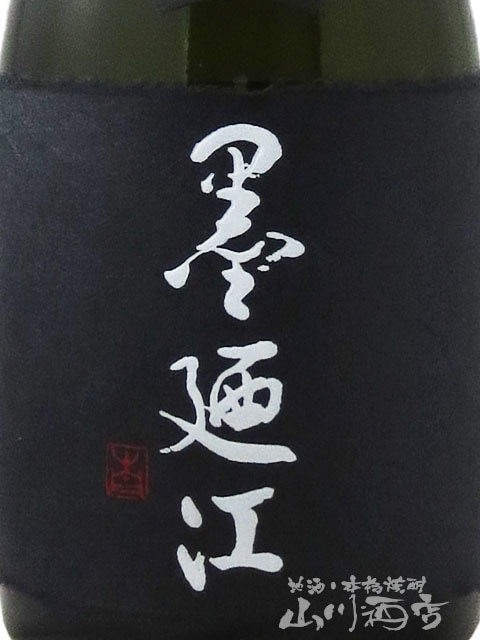 墨廼江
地酒・本格焼酎
山川酒店